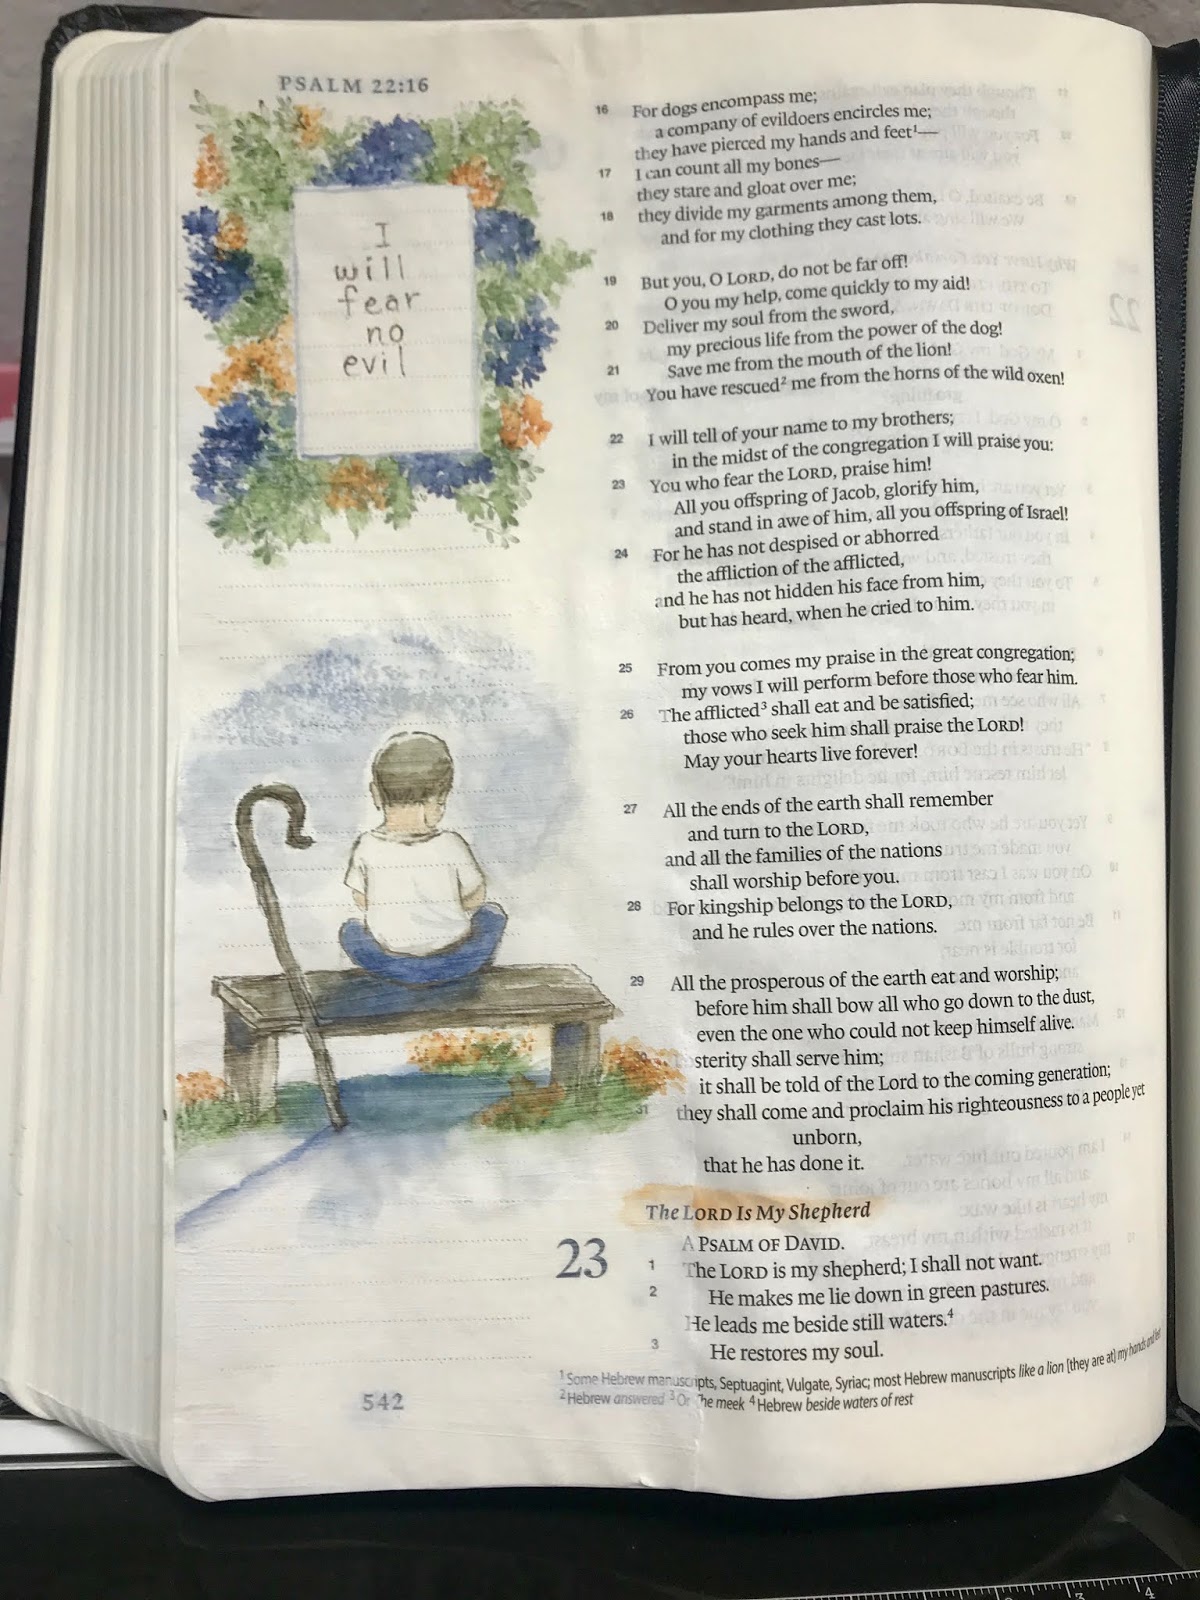 PSALM 22:16
I
will
fear
no
evil
16 For dogs encompass me;
a company of evildoers encircles me;
they have pierced my hands and feet¹—
17 I can count all my bones—
they stare and gloat over me;
18 they divide my garments among them,
and for my clothing they cast lots.
19 But you, O LORD, do not be far off!
O you my help, come quickly to my aid!
20 Deliver my soul from the sword,
my precious life from the power of the dog!
21 Save me from the mouth of the lion!
You have rescued² me from the horns of the wild oxen!
22 I will tell of your name to my brothers;
in the midst of the congregation I will praise you:
23 You who fear the LORD, praise him!
All you offspring of Jacob, glorify him,
and stand in awe of him, all you offspring of Israel!
24 For he has not despised or abhorred
the affliction of the afflicted,
and he has not hidden his face from him,
but has heard, when he cried to him.
25 From you comes my praise in the great congregation;
my vows I will perform before those who fear him.
26 The afflicted³ shall eat and be satisfied;
those who seek him shall praise the LORD!
May your hearts live forever!
27 All the ends of the earth shall remember
and turn to the LORD,
and all the families of the nations
shall worship before you.
28 For kingship belongs to the LORD,
and he rules over the nations.
29 All the prosperous of the earth eat and worship;
before him shall bow all who go down to the dust,
even the one who could not keep himself alive.
30 sterity shall serve him;
it shall be told of the Lord to the coming generation;
31 they shall come and proclaim his righteousness to a people yet
unborn,
that he has done it.
The LORD Is My Shepherd
23 A PSALM OF DAVID.
1 The LORD is my shepherd; I shall not want.
2 He makes me lie down in green pastures.
He leads me beside still waters.⁴
3 He restores my soul.
¹ Some Hebrew manuscripts, Septuagint, Vulgate, Syriac; most Hebrew manuscripts like a lion [they are at] my hands and feet
² Hebrew answered ³ Or The meek ⁴ Hebrew beside waters of rest
542
3 4